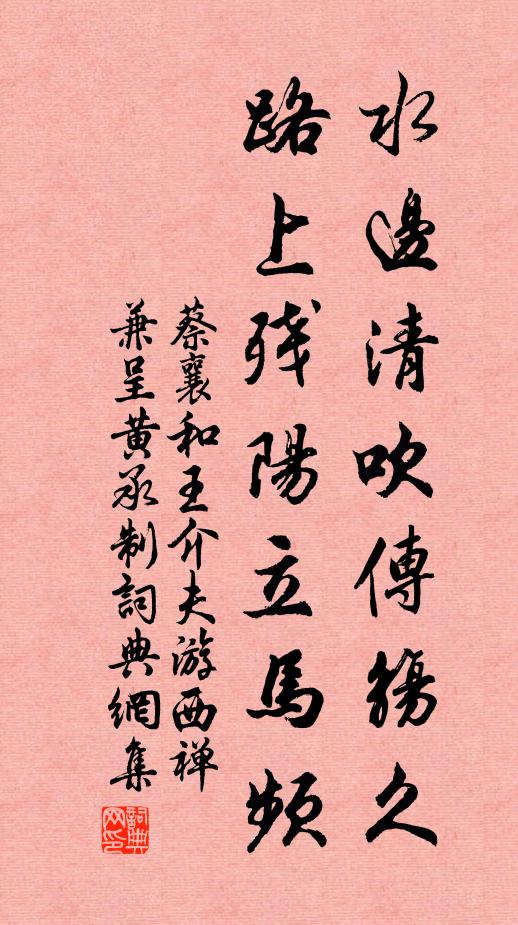 水邊清吹傳觴久
路上残陽立馬頻
蔡襄和王介夫游西禅
兼呈黄承制詞典網集
詞典
网印